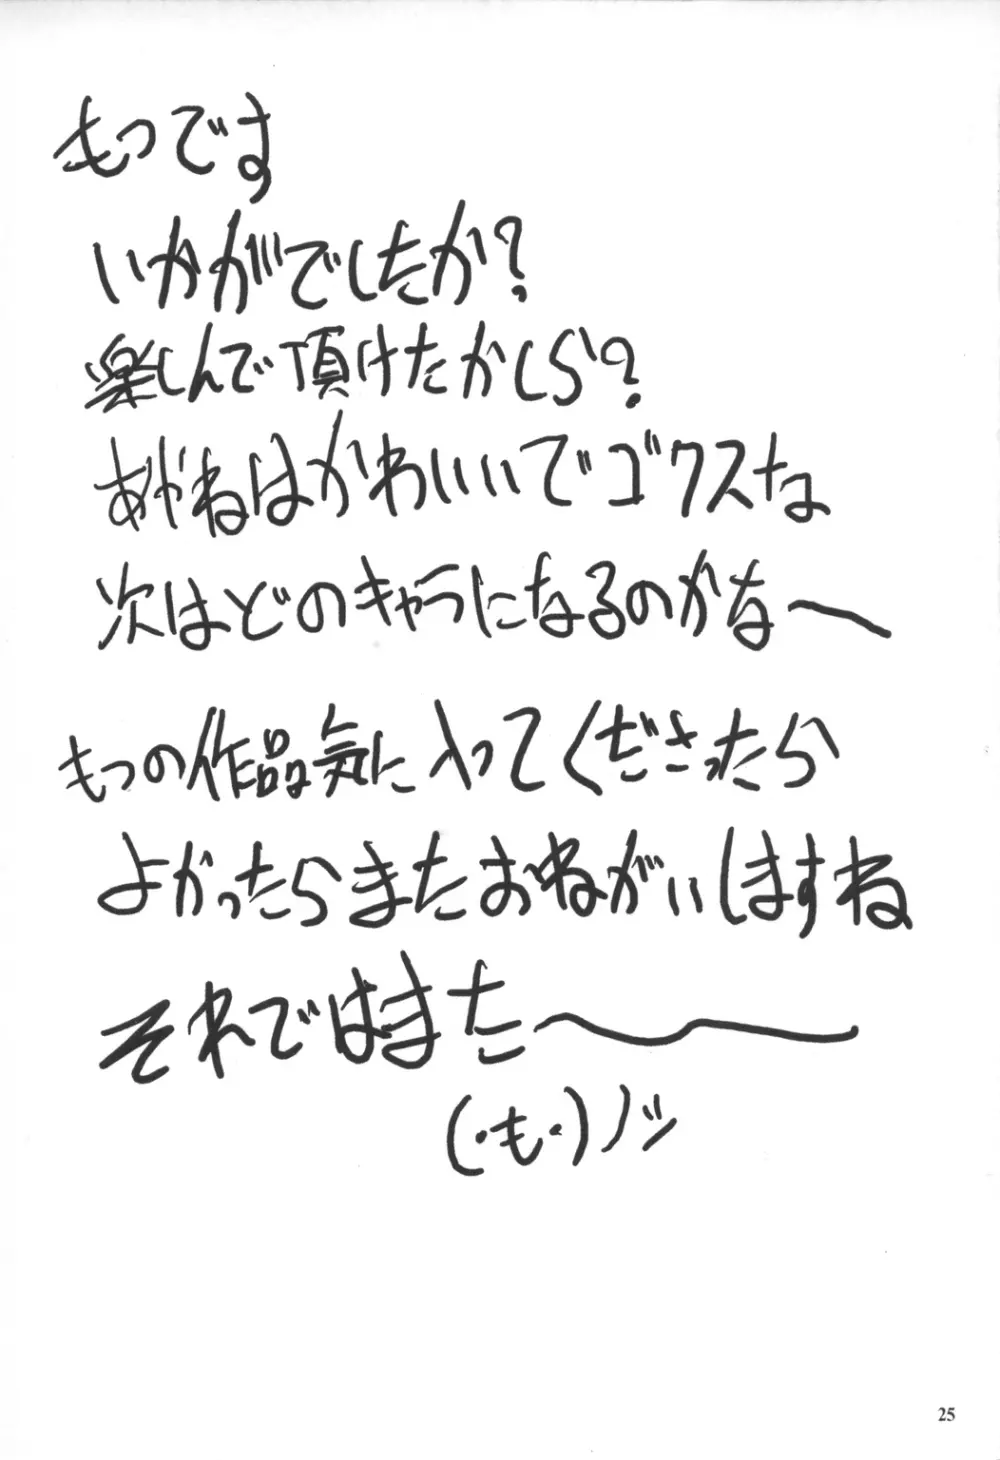 もつです
いかがでしたか?
楽しんで頂けたかしら?
あかねはかわいいでゴクスな
次はどのキャラになるのかな～
もつの作品気に入ってくださったら
よかったらまたおねがいしますね
それではまた～
(・も・)ノシ
25